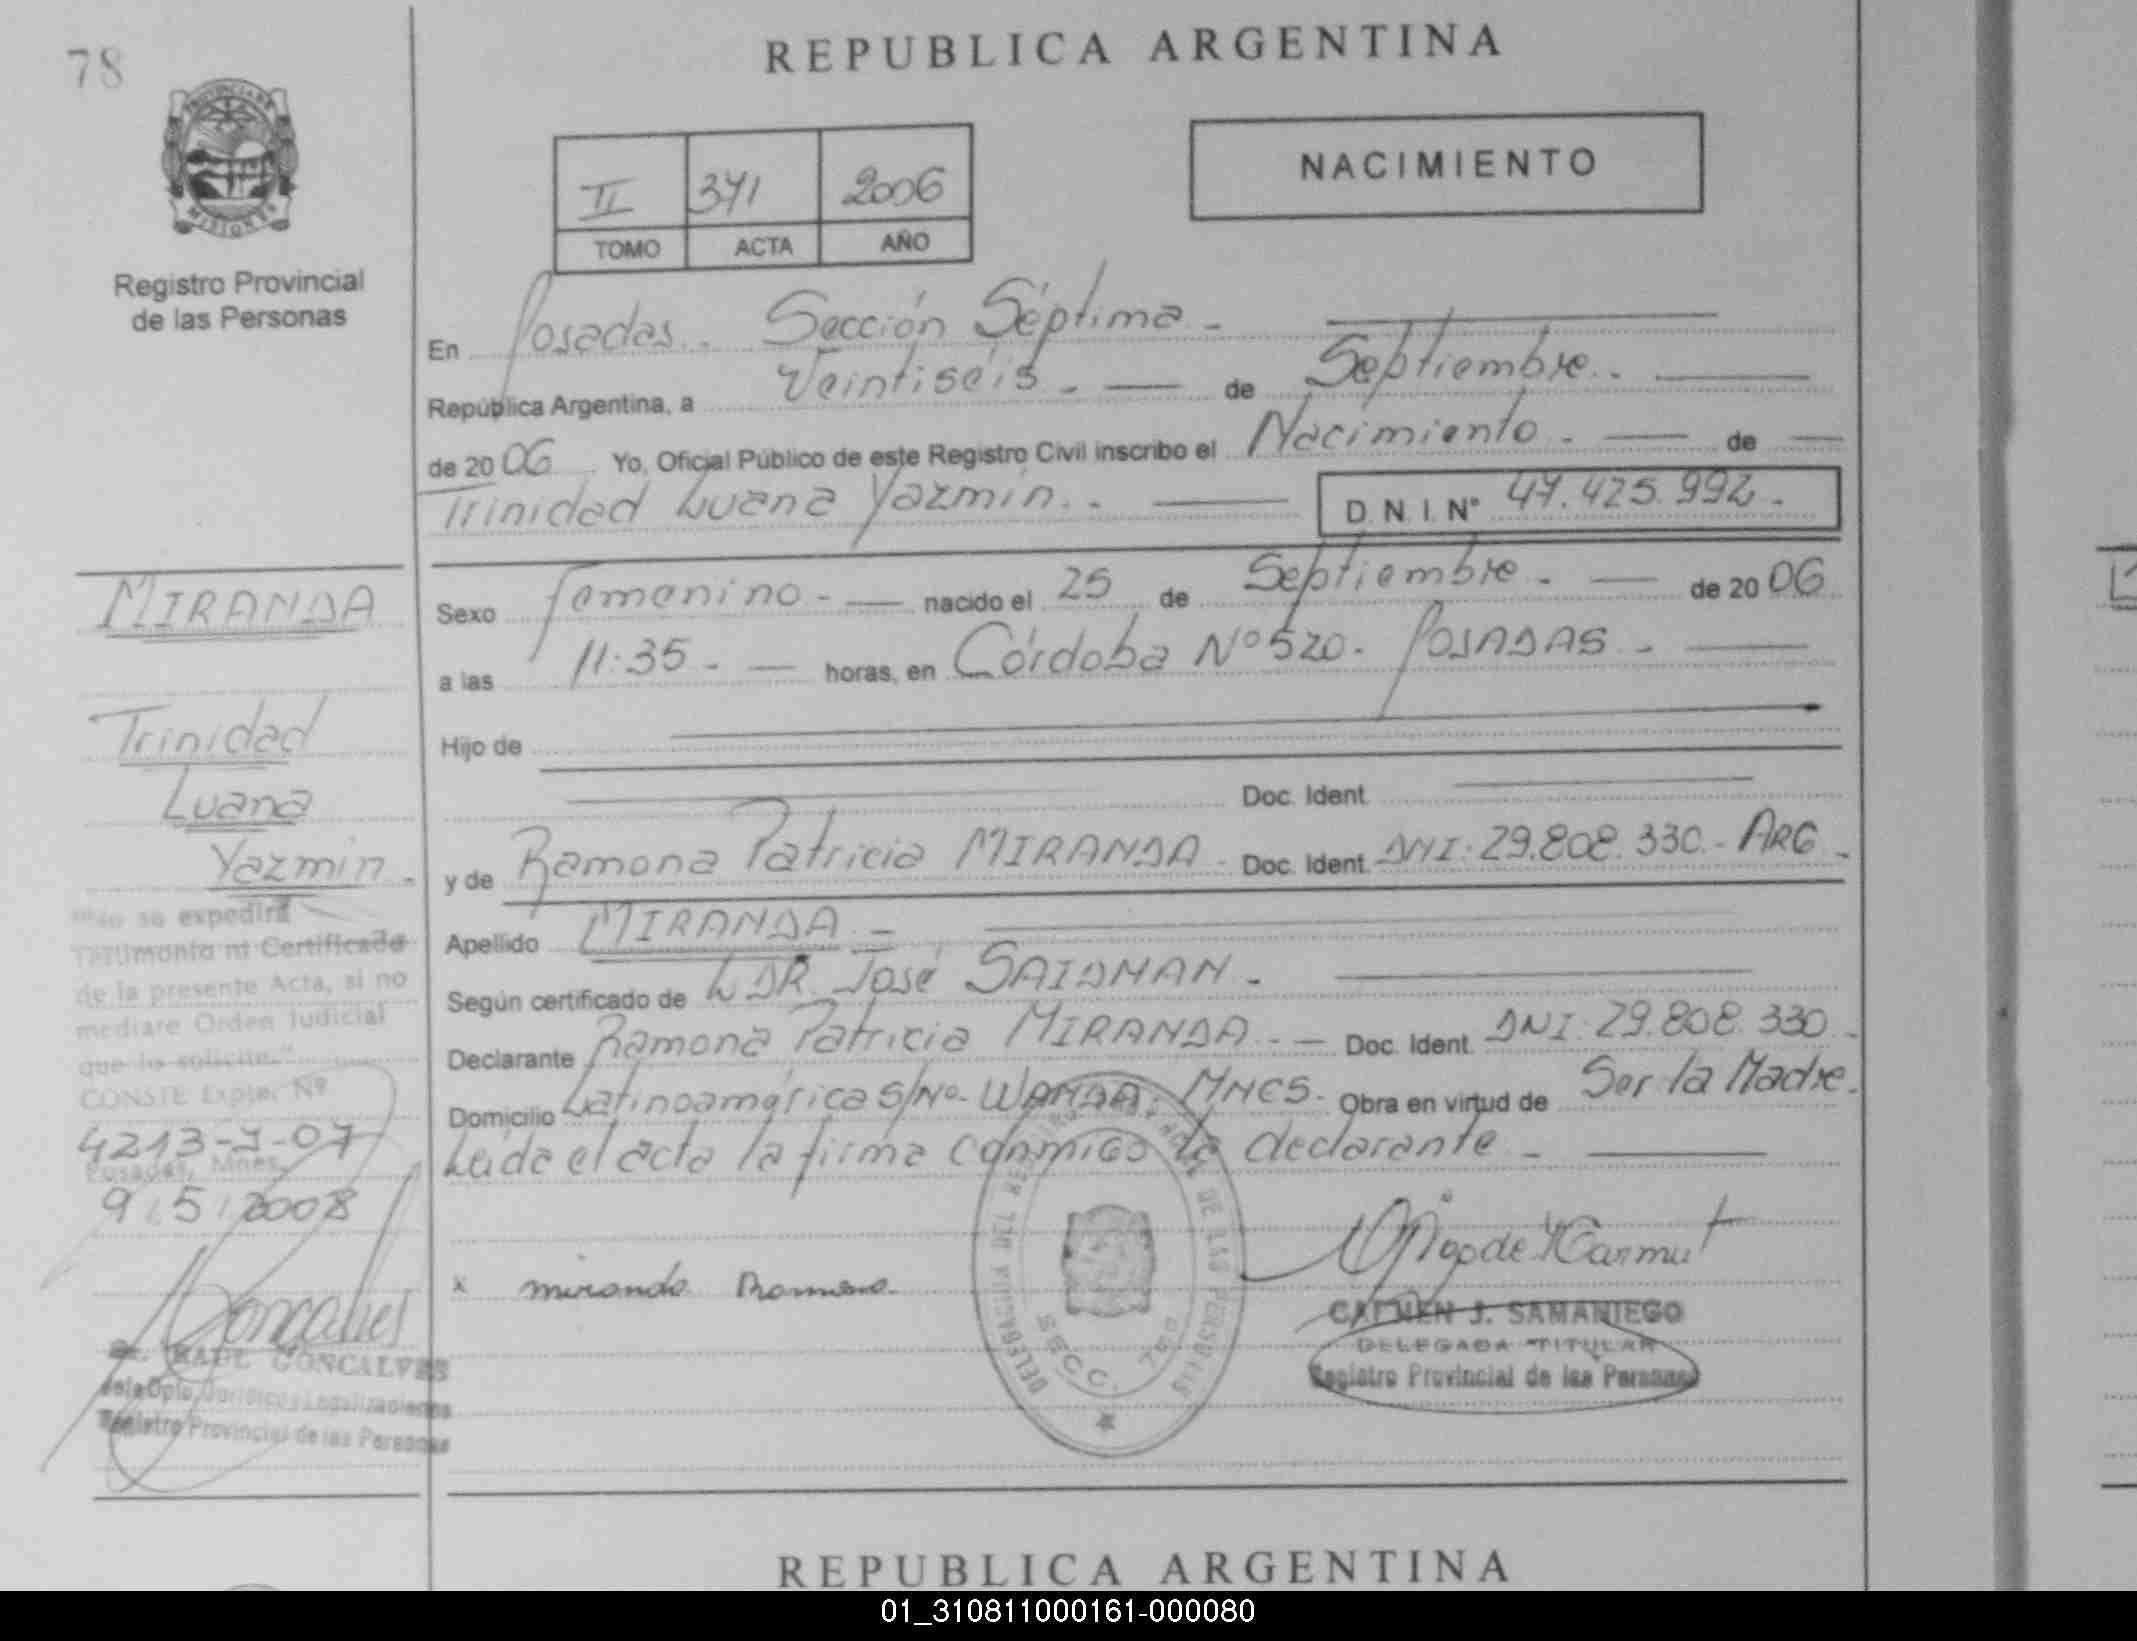 78
REPUBLICA ARGENTINA
PROVINCIA DE
MISIONES
Registro Provincial
de las Personas
II 371 2006
TOMO ACTA AÑO
NACIMIENTO
En Posadas. Sección Séptima -
República Argentina, a Veintiséis. - de Septiembre. -
de 2006 Yo, Oficial Público de este Registro Civil inscribo el Nacimiento. - de
Trinidad Luana Yazmin. - D.N.I. Nº 47.425.992.
Sexo femenino - nacido el 25 de Septiembre. - de 2006
a las 11:35. - horas, en Córdoba Nº 520. POSADAS. -
Hijo de
Doc. Ident.
y de Ramona Patricia MIRANDA. Doc. Ident. DNI. 29.808.330.- ARG.
Apellido MIRANDA. -
Según certificado de DR. José SAIDMAN. -
Declarante Ramona Patricia MIRANDA. - Doc. Ident. DNI. 29.808.330.-
Domicilio Latinoamérica S/Nº. WANDA. MNES. Obra en virtud de Ser la Madre.
Leída el acta la firma conmigo la declarante -
MIRANDA
Trinidad
Luana
Yazmin.
"No se expedirá
Testimonio ni Certificado
de la presente Acta, si no
mediare Orden Judicial
que lo solicite."
CONSTE Expte. Nº
4213-J-07
Posadas, Mnes.
9/5/2008
Goncalves
Dr. RAUL GONCALVES
Registro Provincial de las Personas
x miranda Ramona.
DELEGACION DEL REGISTRO PROVINCIAL DE LAS PERSONAS
SECC. 7ma
CARMEN J. SAMANIEGO
DELEGADA TITULAR
Registro Provincial de las Personas
REPUBLICA ARGENTINA
01_310811000161-000080